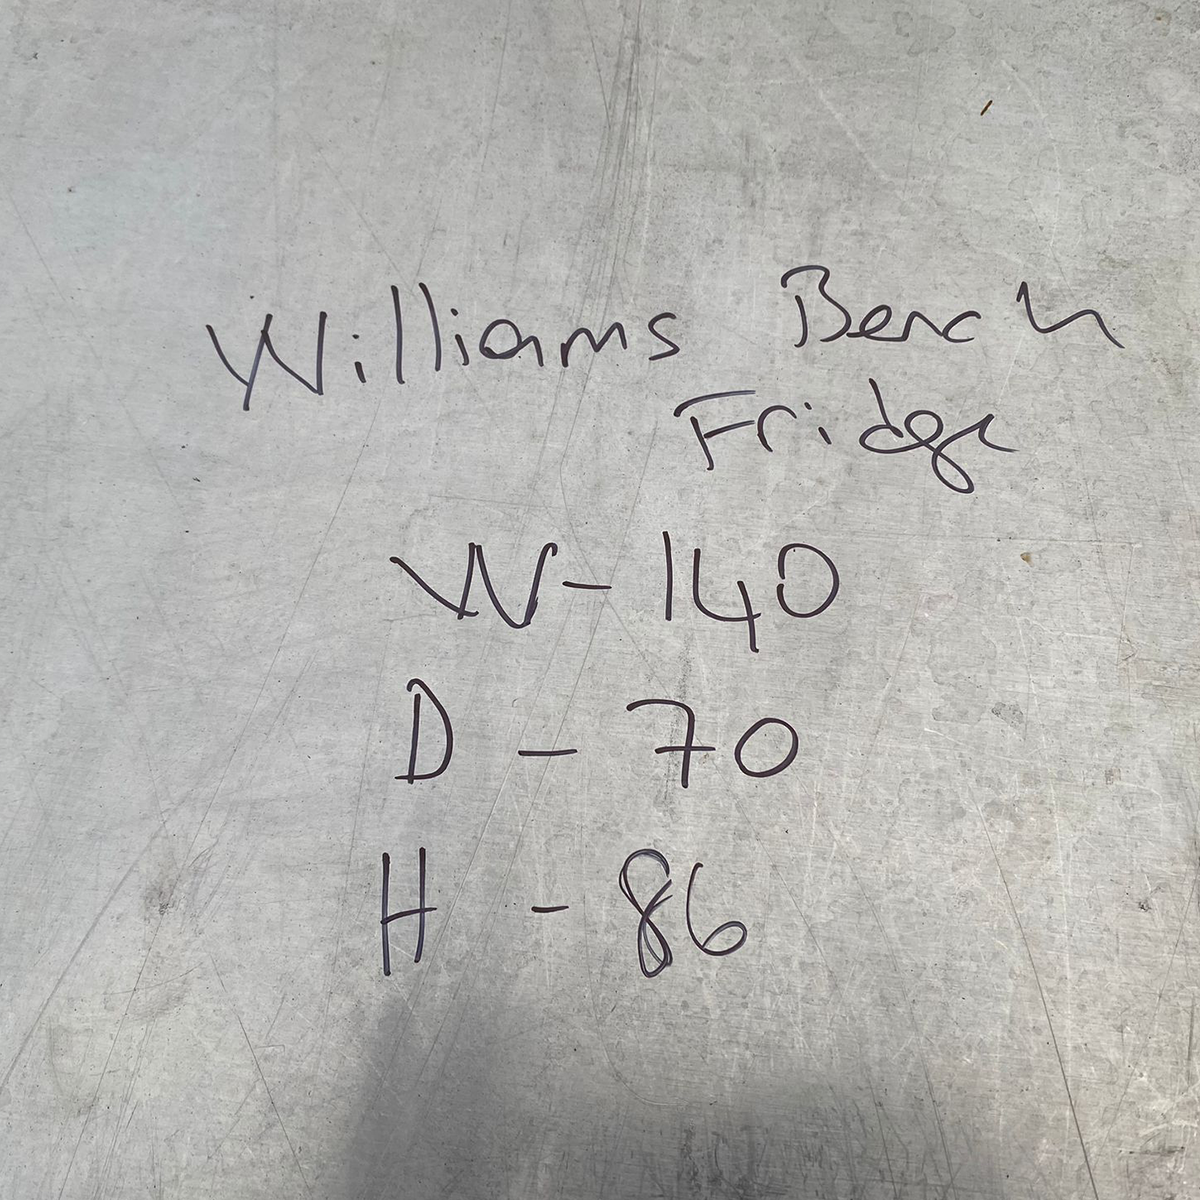 Williams Bench
Fridge
W - 140
D - 70
H - 86